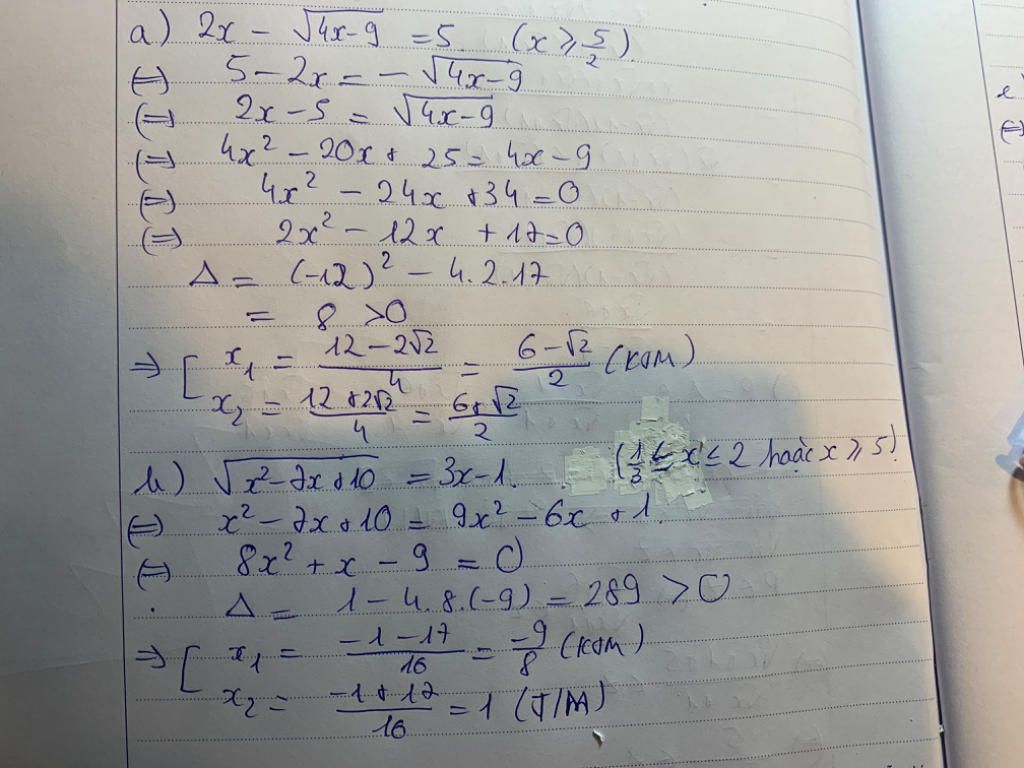 a) 2x - √(4x-9) = 5. (x ≥ 5/2).
(=) 5 - 2x = - √(4x-9)
(=) 2x - 5 = √(4x-9)
(=) 4x² - 20x + 25 = 4x - 9
(=) 4x² - 24x + 34 = 0
(=) 2x² - 12x + 17 = 0
Δ = (-12)² - 4.2.17
= 8 > 0
=> [ x₁ = (12 - 2√2)/4 = (6 - √2)/2 (KTM)
x₂ = (12 + 2√2)/4 = (6 + √2)/2
b) √(x² - 7x + 10) = 3x - 1. (1/3 ≤ x ≤ 2 hoặc x ≥ 5)
(=) x² - 7x + 10 = 9x² - 6x + 1.
(=) 8x² + x - 9 = 0
Δ = 1 - 4.8.(-9) = 289 > 0
=> [ x₁ = (-1 - 17)/16 = -9/8 (KTM)
x₂ = (-1 + 17)/16 = 1 (T/M)
e)
(=)